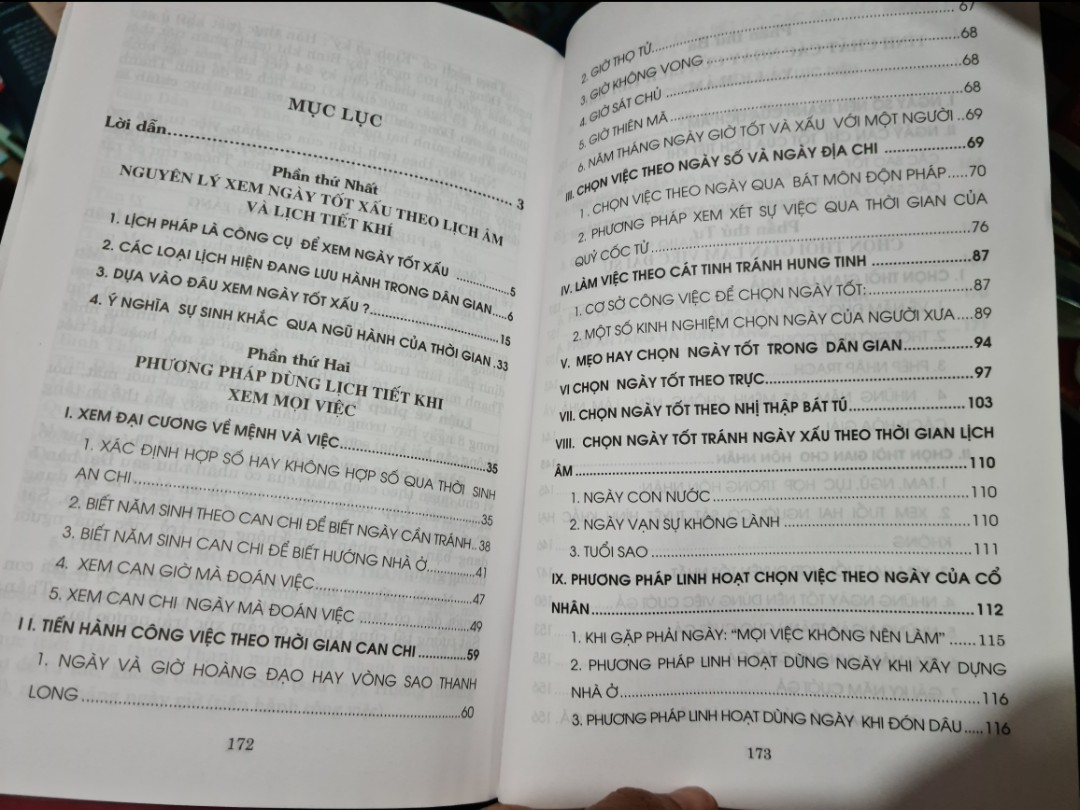 MỤC LỤC
Lời dẫn........................................................ 3
Phần thứ Nhất
NGUYÊN LÝ XEM NGÀY TỐT XẤU THEO LỊCH ÂM
VÀ LỊCH TIẾT KHÍ
1. LỊCH PHÁP LÀ CÔNG CỤ ĐỂ XEM NGÀY TỐT XẤU ........5
2. CÁC LOẠI LỊCH HIỆN ĐANG LƯU HÀNH TRONG DÂN GIAN....6
3. DỰA VÀO ĐÂU XEM NGÀY TỐT XẤU ?........................15
4. Ý NGHĨA SỰ SINH KHẮC QUA NGŨ HÀNH CỦA THỜI GIAN .33
Phần thứ Hai
PHƯƠNG PHÁP DÙNG LỊCH TIẾT KHI
XEM MỌI VIỆC
I. XEM ĐẠI CƯƠNG VỀ MỆNH VÀ VIỆC........................35
1. XÁC ĐỊNH HỢP SỐ HAY KHÔNG HỢP SỐ QUA THỜI SINH
AN CHI........................................................35
2. BIẾT NĂM SINH THEO CAN CHI ĐỂ BIẾT NGÀY CẦN TRÁNH.. 38
3. BIẾT NĂM SINH CAN CHI ĐỂ BIẾT HƯỚNG NHÀ Ở ........41
4. XEM CAN GIỜ MÀ ĐOÁN VIỆC........................47
5. XEM CAN CHI NGÀY MÀ ĐOÁN VIỆC ..................49
I I. TIẾN HÀNH CÔNG VIỆC THEO THỜI GIAN CAN CHI ........59
1. NGÀY VÀ GIỜ HOÀNG ĐẠO HAY VÒNG SAO THANH
LONG........................................................60
172
67
2. GIỜ THỌ TỬ........................................68
3. GIỜ KHÔNG VONG ..................................68
4. GIỜ SÁT CHỦ ......................................68
5. GIỜ THIÊN MÃ ....................................68
6. NĂM THÁNG NGÀY GIỜ TỐT VÀ XẤU VỚI MỘT NGƯỜI ..69
III. CHỌN VIỆC THEO NGÀY SỐ VÀ NGÀY ĐỊA CHI ............69
1. CHỌN VIỆC THEO NGÀY QUA BÁT MÔN ĐỘN PHÁP.....70
2. PHƯƠNG PHÁP XEM XÉT SỰ VIỆC QUA THỜI GIAN CỦA
QUỶ CỐC TỬ ........................................76
IV. LÀM VIỆC THEO CÁT TINH TRÁNH HUNG TINH ............87
1. CƠ SỞ CÔNG VIỆC ĐỂ CHỌN NGÀY TỐT:................87
2. MỘT SỐ KINH NGHIỆM CHỌN NGÀY CỦA NGƯỜI XƯA ..89
V. MẸO HAY CHỌN NGÀY TỐT TRONG DÂN GIAN..............94
VI CHỌN NGÀY TỐT THEO TRỰC............................97
VII. CHỌN NGÀY TỐT THEO NHỊ THẬP BÁT TÚ ..............103
VIII. CHỌN NGÀY TỐT TRÁNH NGÀY XẤU THEO THỜI GIAN LỊCH
ÂM........................................................110
1. NGÀY CON NƯỚC ..................................110
2. NGÀY VẠN SỰ KHÔNG LÀNH ........................110
3. TUỔI SAO ........................................111
IX. PHƯƠNG PHÁP LINH HOẠT CHỌN VIỆC THEO NGÀY CỦA CỔ
NHÂN......................................................112
1. KHI GẶP PHẢI NGÀY: “MỌI VIỆC KHÔNG NÊN LÀM” ......115
2. PHƯƠNG PHÁP LINH HOẠT DỪNG NGÀY KHI XÂY DỰNG
NHÀ Ở....................................................116
3. PHƯƠNG PHÁP LINH HOẠT DÙNG NGÀY KHI ĐÓN DÂU .....116
173